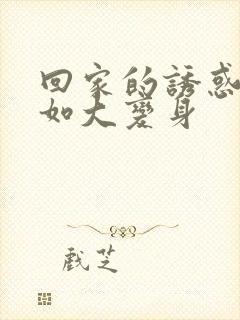 回家的誘惑
如大變身
戲芝